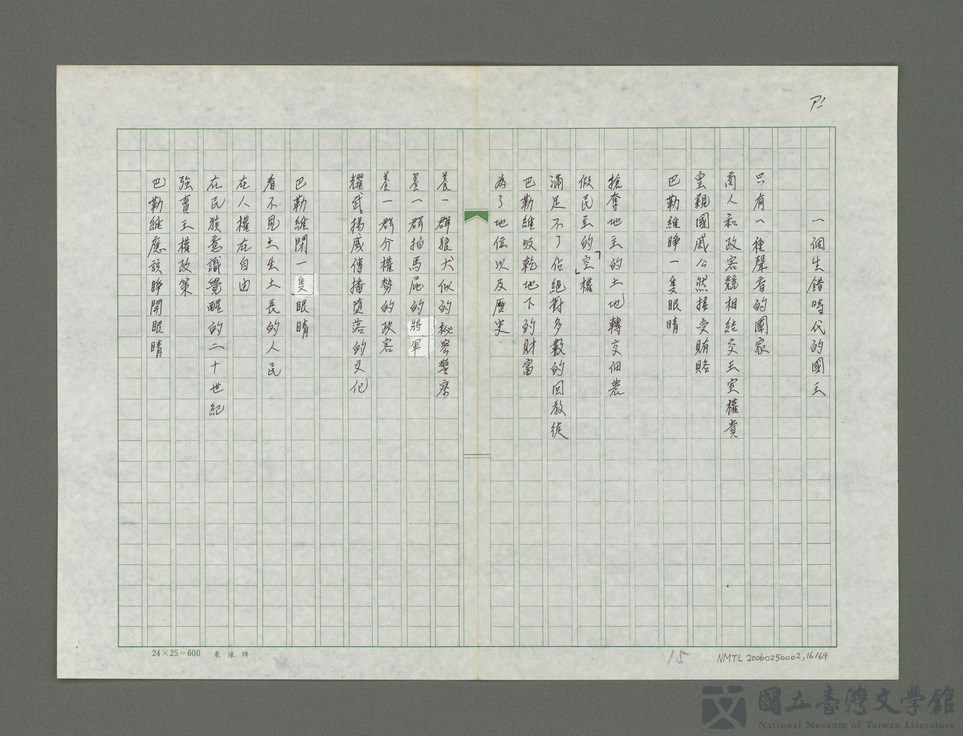 P2
一個生錯時代的國王
只有一種聲音的國家
商人和政客競相結交王室權貴
皇親國戚公然接受賄賂
巴勒維睜一隻眼睛
搶奪地主的土地轉交佃農
假民主的「皇」權
滿足不了佔絕對多數的回教徒
巴勒維吸乾地下的財富
為了地位以及歷史
養一群狼犬似的秘密警察
養一群拍馬屁的將軍
養一群介權勢的政客
耀武揚威傳播墮落的文化
巴勒維閉一隻眼睛
看不見土生土長的人民
在人權在自由
在民族意識覺醒的二十世紀
強賣王權政策
巴勒維應該睜開眼睛
24×25=600
15
NMTL 20060250002,16169
國立臺灣文學館
National Museum of Taiwan Literature